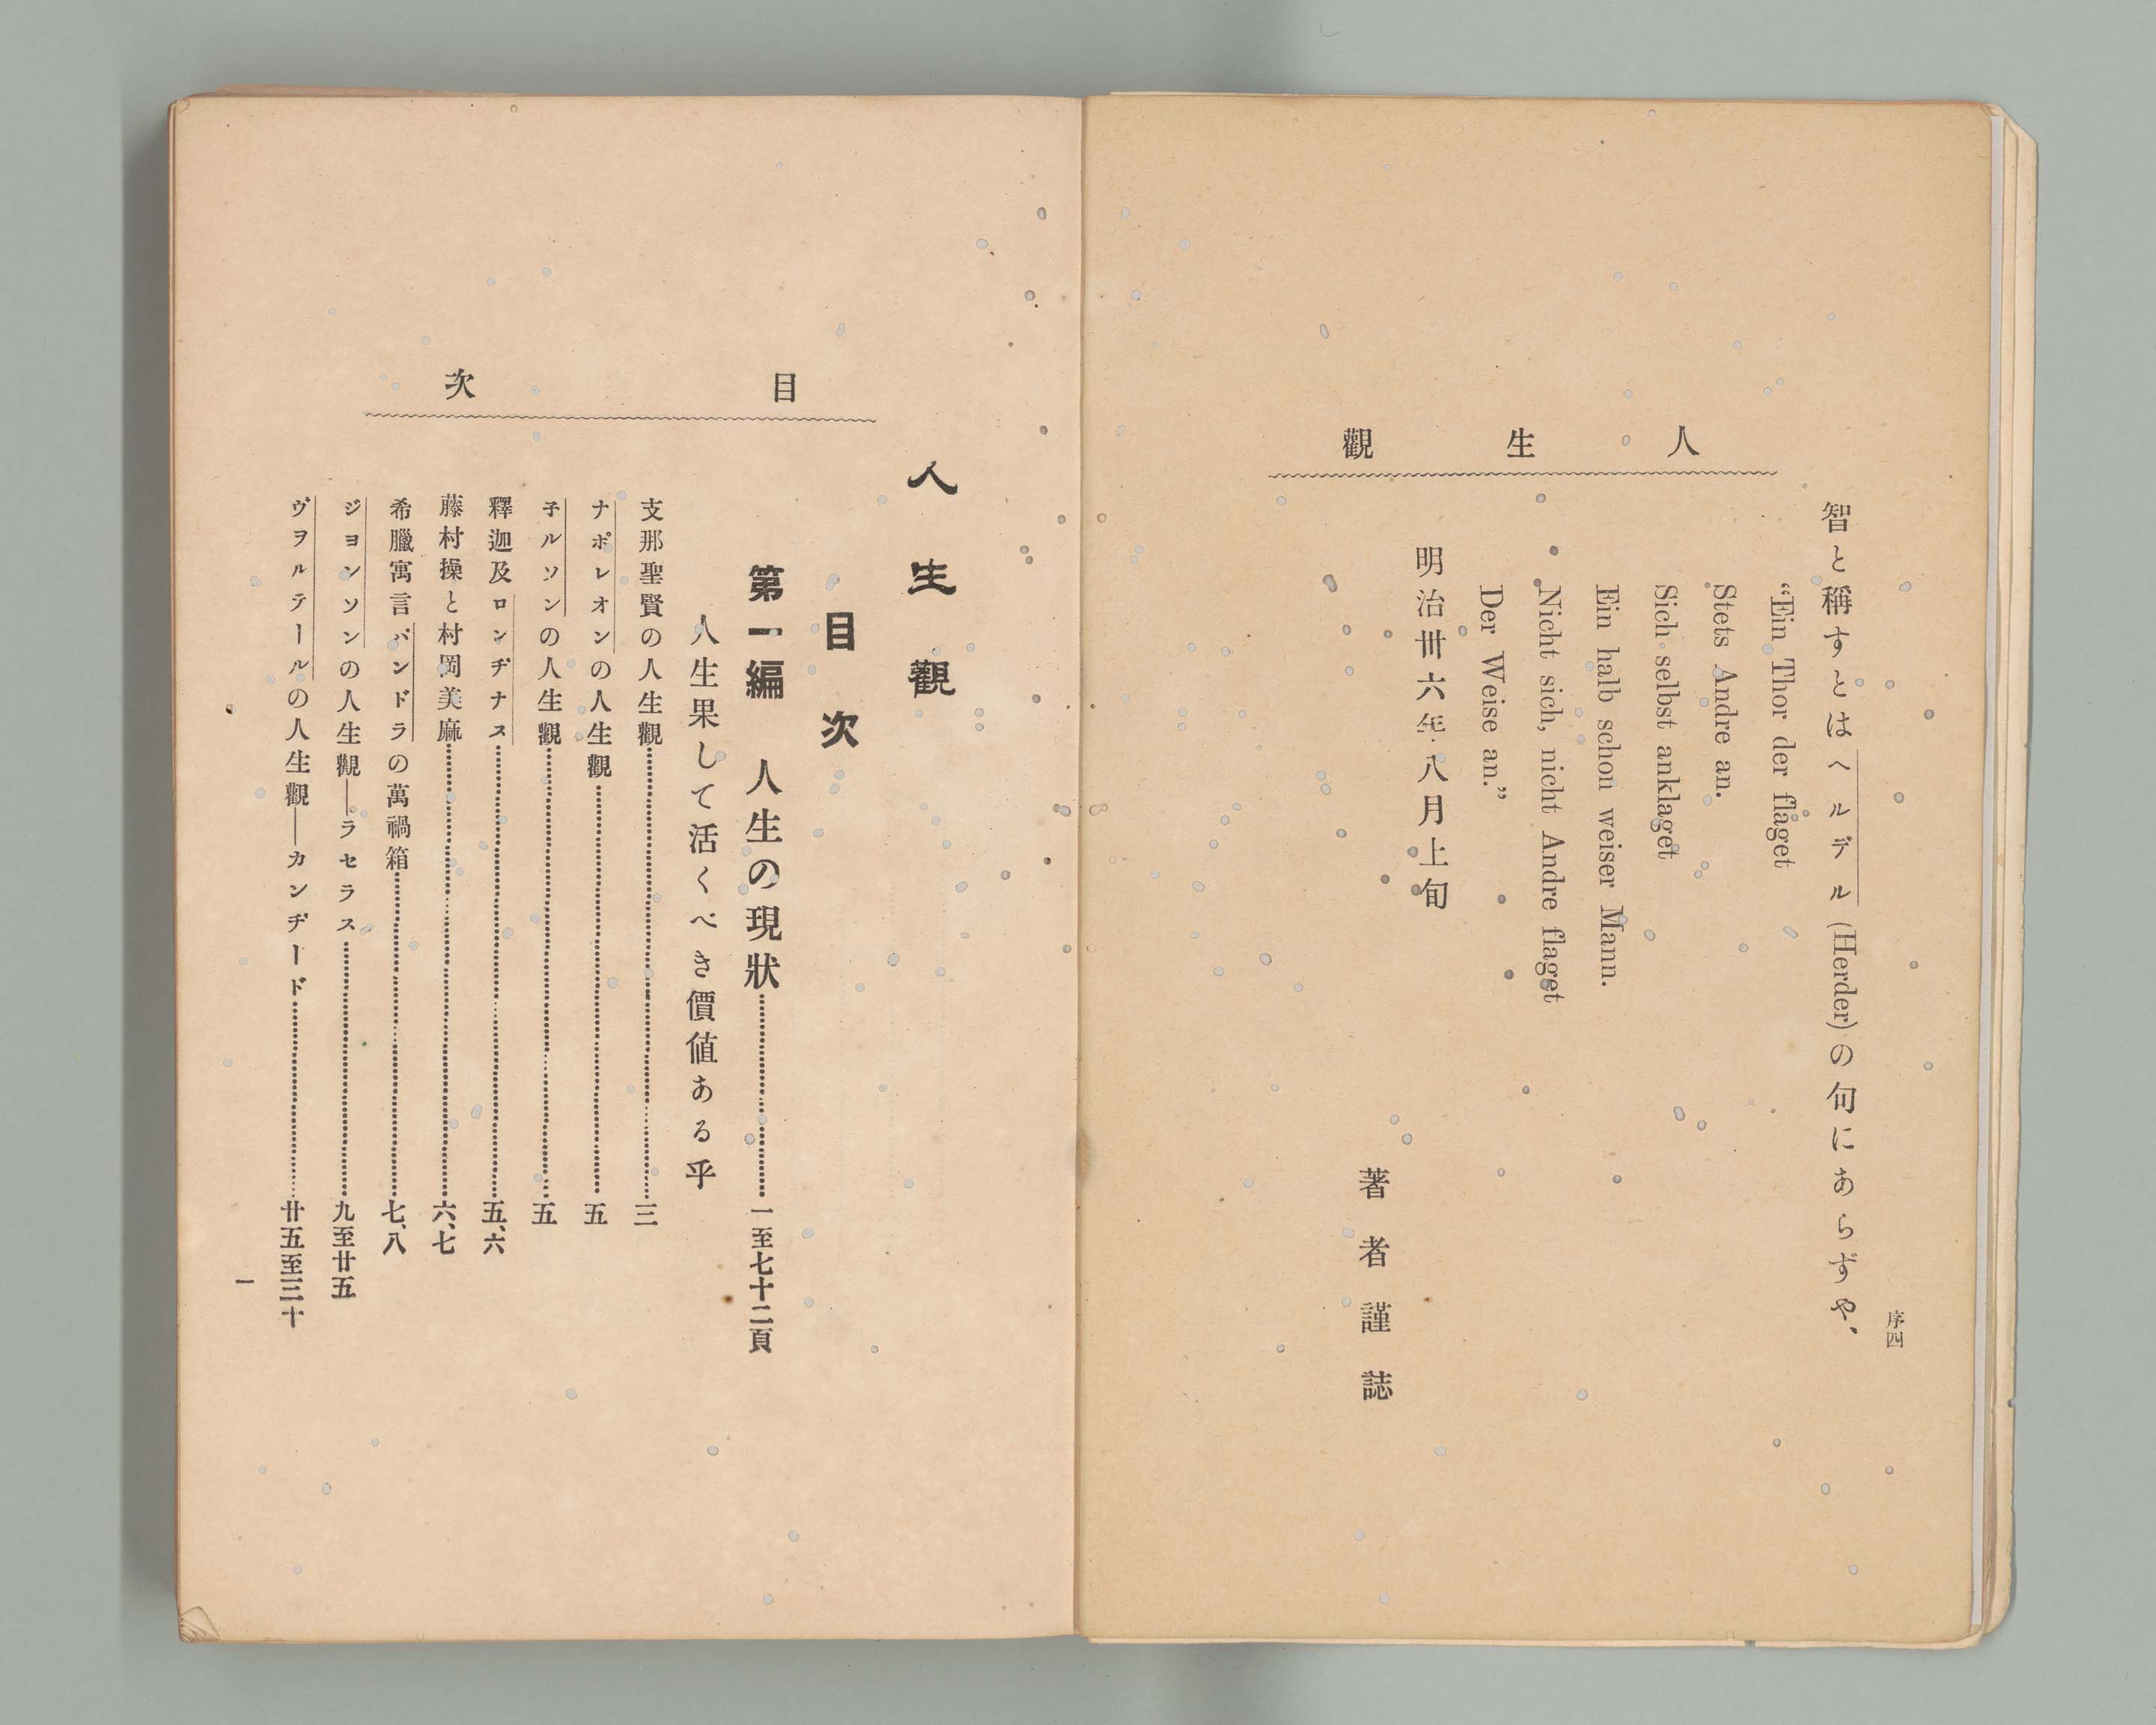 人生觀
序四
智と稱すとはヘルデル (Herder) の句にあらずや、
“Ein Thor der flaget
Stets Andre an.
Sich selbst anklaget
Ein halb schon weiser Mann.
Nicht sich, nicht Andre flaget
Der Weise an.”
明治丗六年八月上旬
著者謹誌
目次
人生觀
目次
第一編 人生の現狀……一至七十二頁
人生果して活くべき價値ある乎
支那聖賢の人生觀……三
ナポレオンの人生觀……五
子ルソンの人生觀……五
釋迦及ロンヂナス……五、六
藤村操と村岡美麻……六、七
希臘寓言パンドラの萬禍箱……七、八
ジヨンソンの人生觀―ラセラス……九至廿五
ヴヲルテールの人生觀―カンヂード……廿五至三十
一